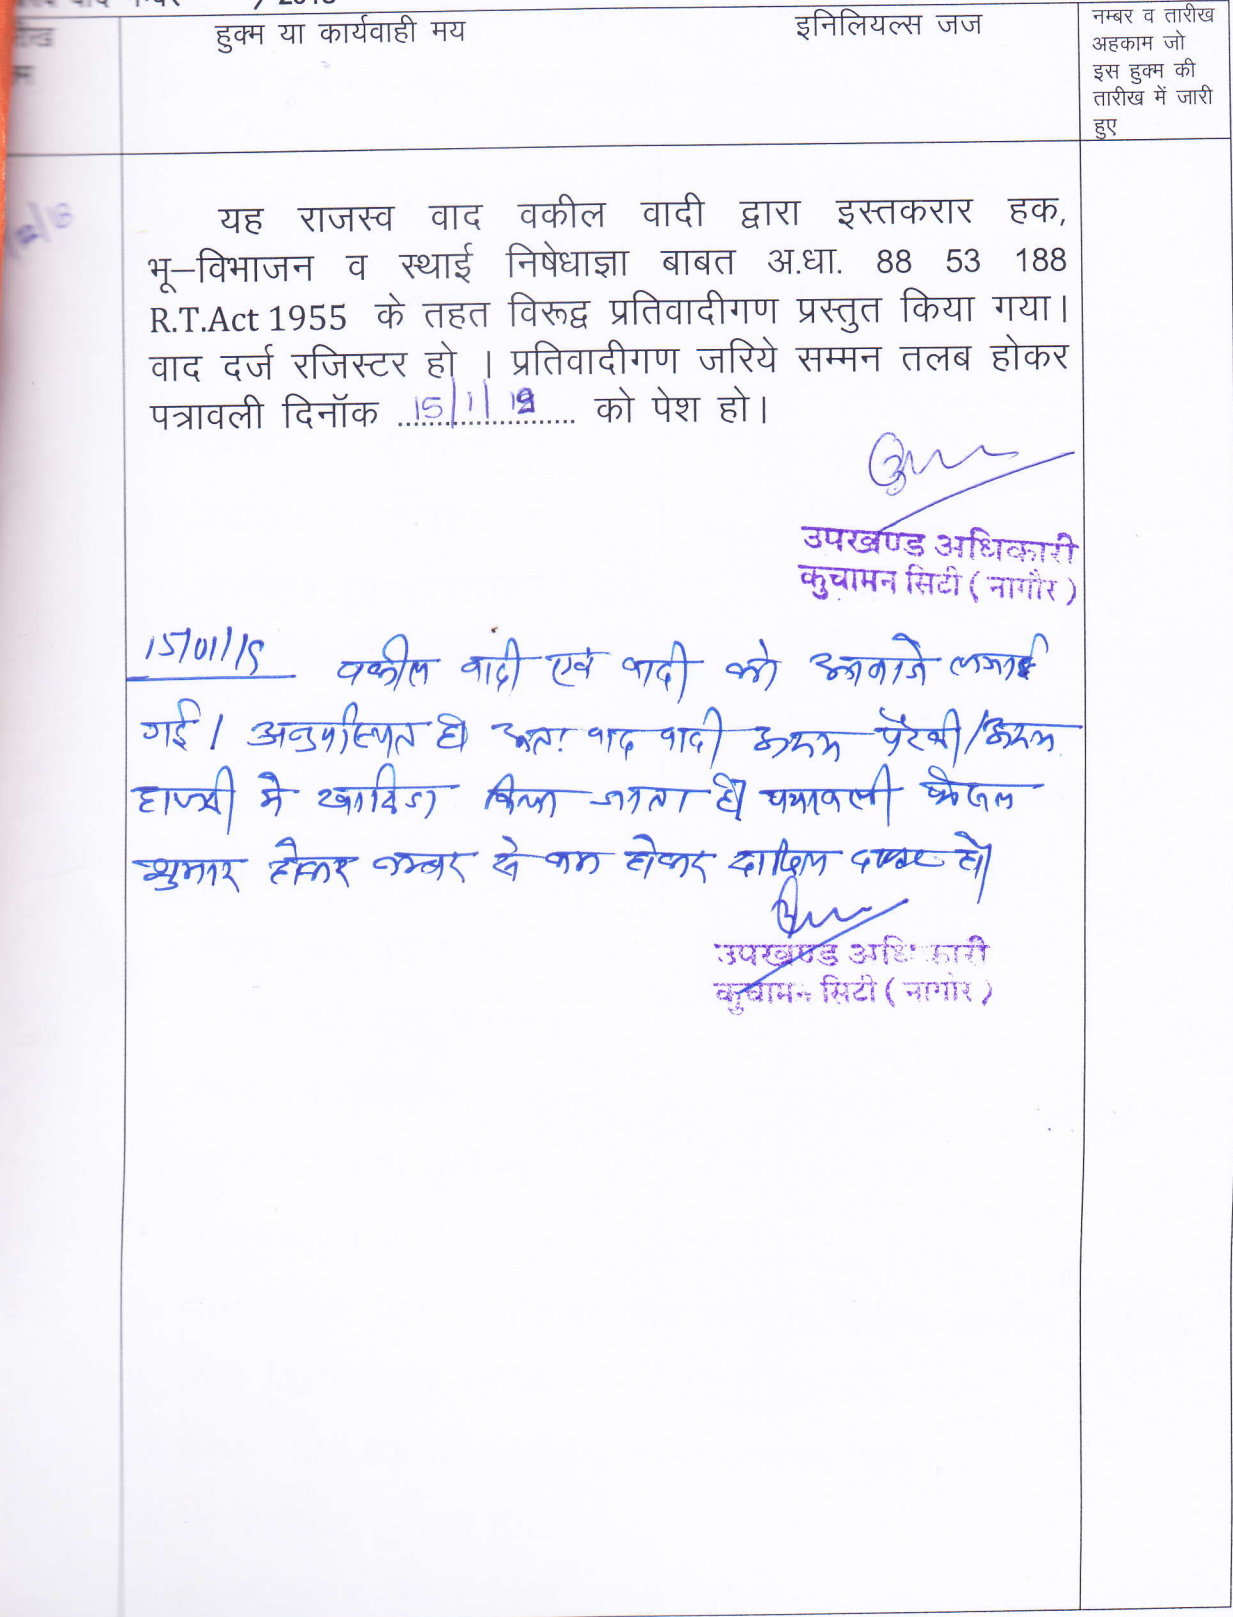 / 2018
हुक्म या कार्यवाही मय
इनिलियल्स जज
नम्बर व तारीख
अहकाम जो
इस हुक्म की
तारीख में जारी
हुए
यह राजस्व वाद वकील वादी द्वारा इस्तकरार हक,
भू–विभाजन व स्थाई निषेधाज्ञा बाबत अ.धा. 88 53 188
R.T.Act 1955 के तहत विरूद्व प्रतिवादीगण प्रस्तुत किया गया।
वाद दर्ज रजिस्टर हो । प्रतिवादीगण जरिये सम्मन तलब होकर
पत्रावली दिनॉक 15/1/19 को पेश हो।
उपखण्ड अधिकारी
कुचामन सिटी ( नागौर )
15/01/19 वकील वादी एवं वादी को आवाजे लगाई
गई। अनुपस्थित है। अतः वाद वादी अदम पैरवी/अदम
हाजरी मे खारिज किया जाता है। पत्रावली फैसल
शुमार होकर नम्बर से कम होकर दाखिल दफ्तर हो।
उपखण्ड अधिकारी
कुचामन सिटी ( नागौर )